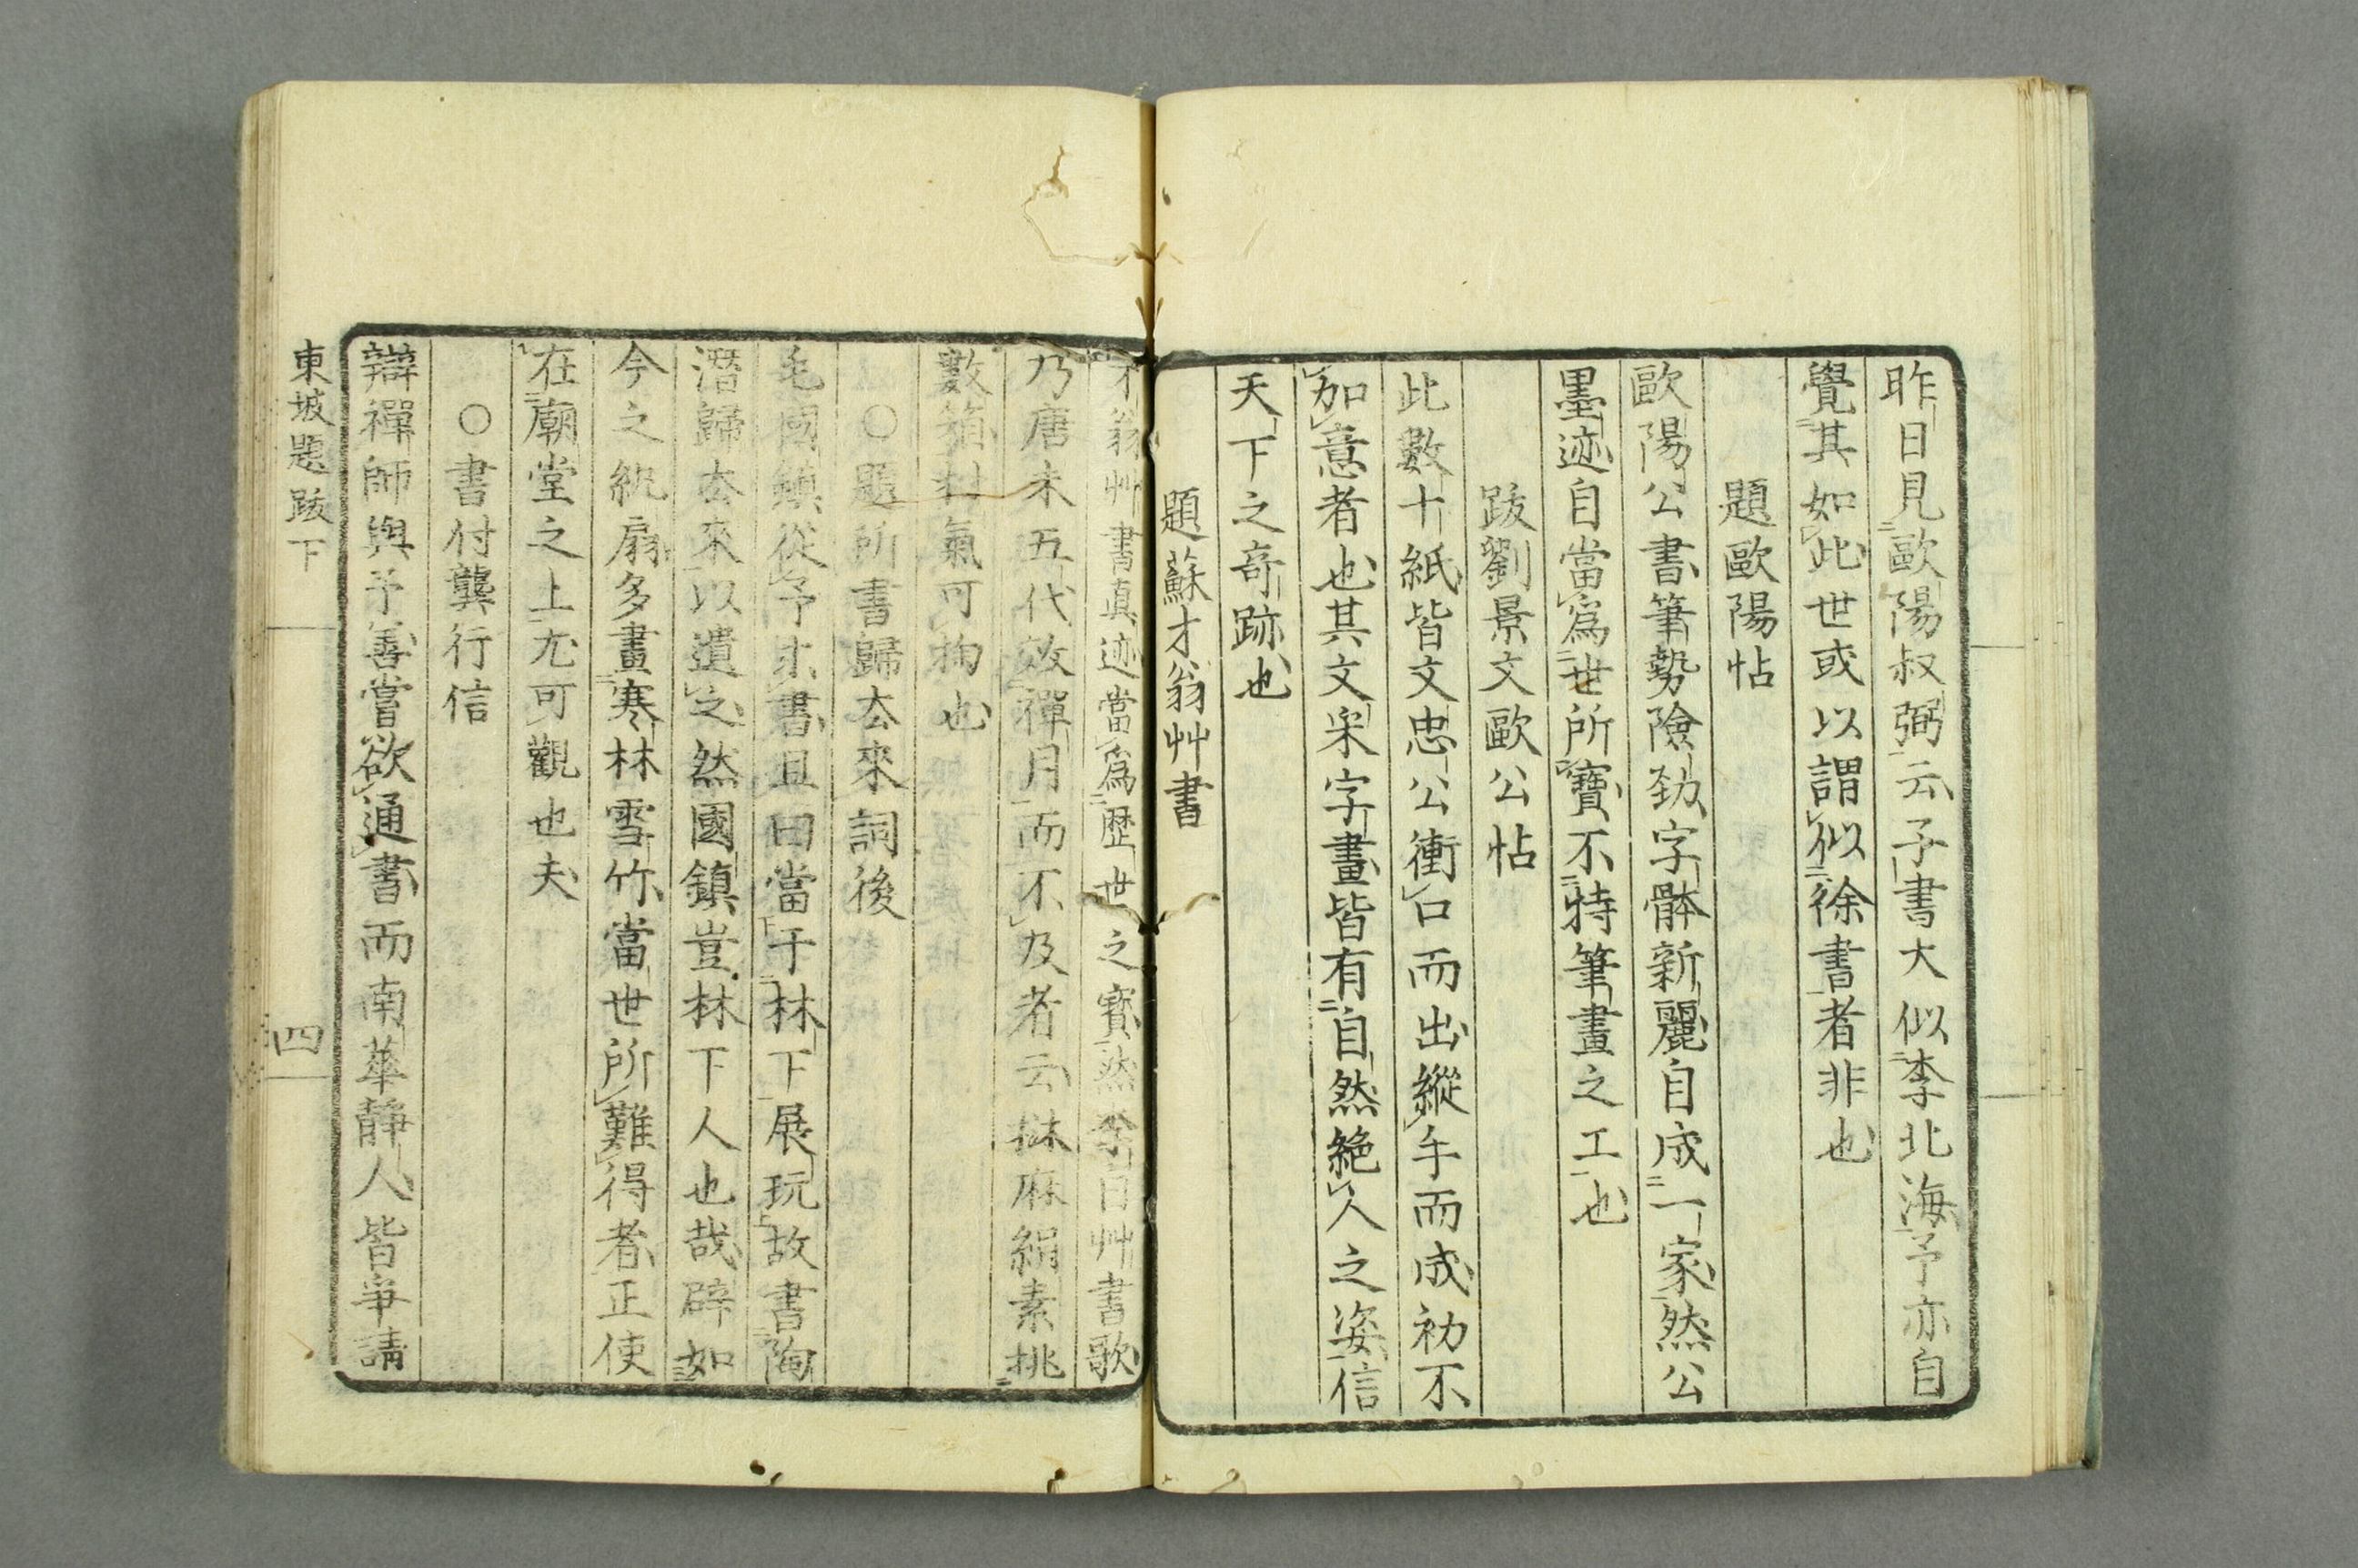 昨日見歐陽叔弼云子書大似李北海予亦自
覺其如此世或以謂似徐書者非也
題歐陽帖
歐陽公書筆勢險勁字骵新麗自成一家然公
墨迹自當爲世所寶不特筆畫之工也
跋劉景文歐公帖
此數十紙皆文忠公衝口而出縱手而成初不
加意者也其文采字畫皆有自然絶人之姿信
天下之奇跡也
題蘇才翁艸書
才翁艸書真迹當爲歴世之寳然李白艸書歌
乃唐末五代效禪月而不及者云牀麻絹素挑
數箱村氣可掬也
○題所書歸去來詞後
毛國鎮從予求書且曰當于林下展玩故書陶
潛歸去來以遺之然國鎮豈林下人也哉辟如
今之紈扇多畫寒林雪竹當世所難得者正使
在廟堂之上尤可觀也夫
○書付龔行信
辯禪師與予善嘗欲通書而南華静人皆爭請
東坡題跋下
四